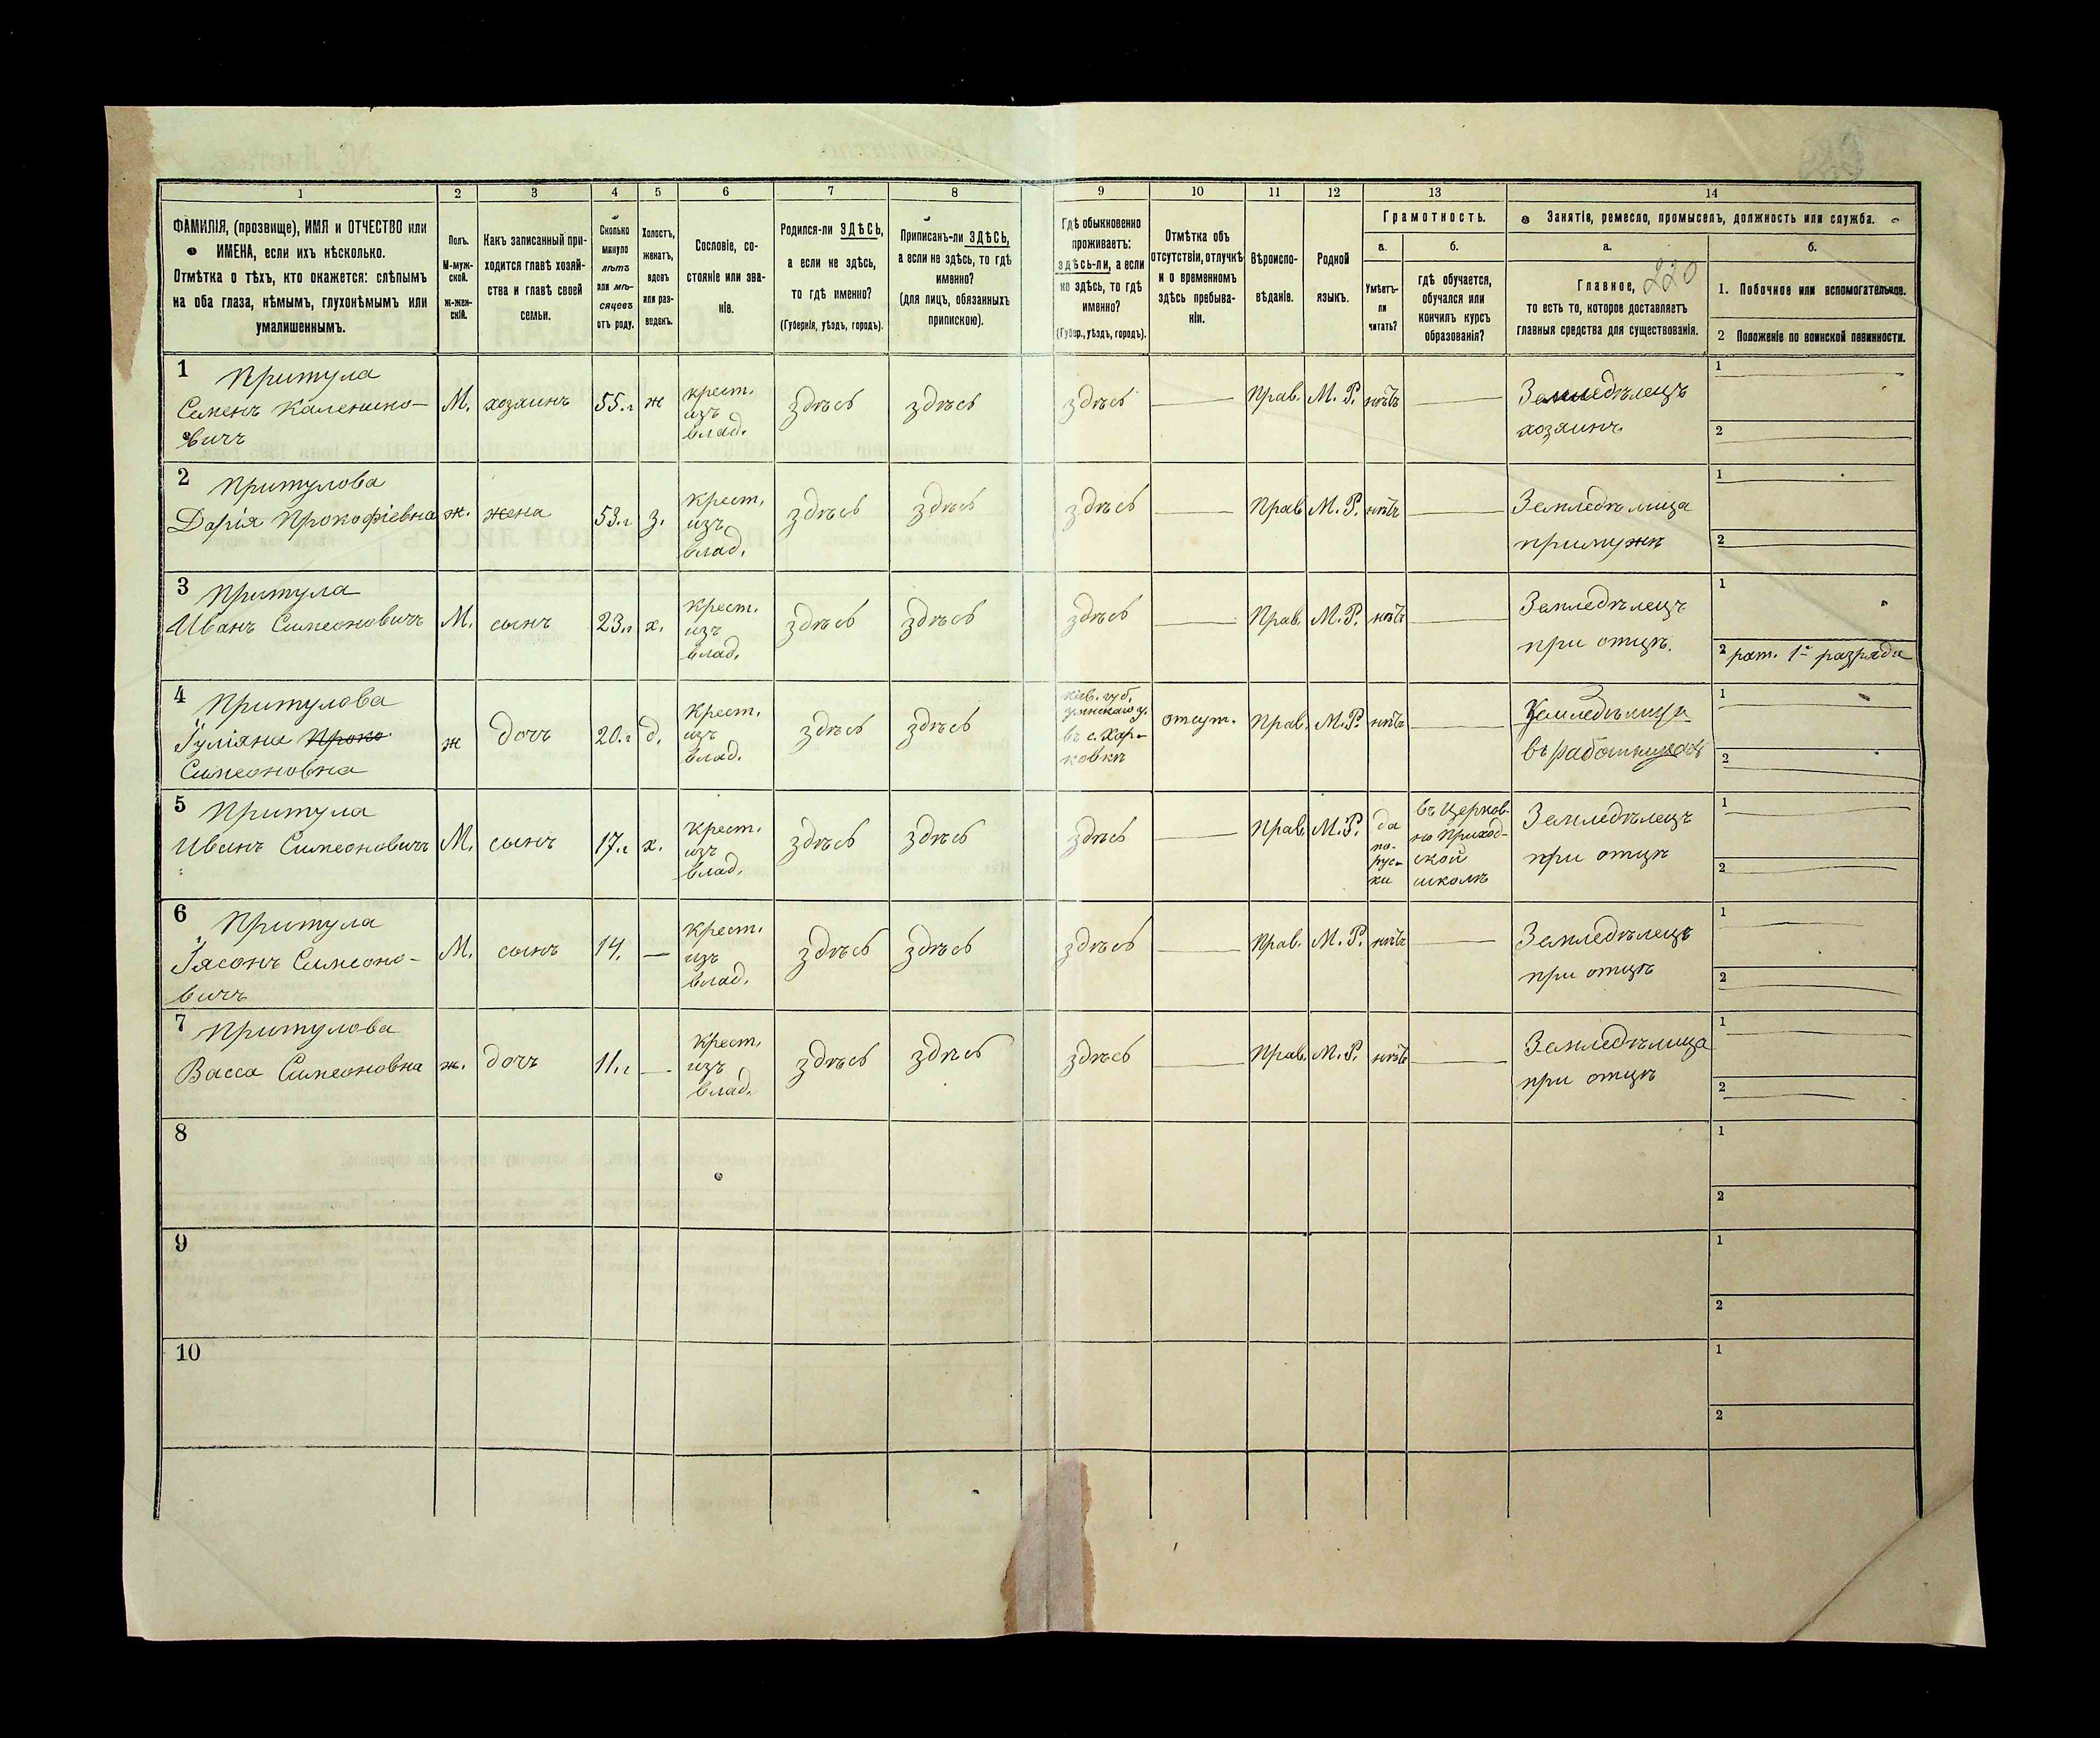 1 2 3 4 5 6 7 8 9 10 11 12 13 14
ФАМИЛІЯ, (прозвище), ИМЯ и ОТЧЕСТВО или
ИМЕНА, если ихъ нѣсколько.
Отмѣтка о тѣхъ, кто окажется: слѣпымъ
на оба глаза, нѣмымъ, глухонѣмымъ или
умалишеннымъ.
Полъ.
М-муж-
ской.
Ж-жен-
скій.
Какъ записанный при-
ходится главѣ хозяй-
ства и главѣ своей
семьи.
Сколько
минуло
лѣтъ
или мѣ-
сяцевъ
отъ роду.
Холостъ,
женатъ,
вдовъ
или раз-
веденъ.
Сословіе, со-
стояніе или зва-
ніе.
Родился-ли ЗДѢСЬ,
а если не здѣсь,
то гдѣ именно?
(Губернія, уѣздъ, городъ).
Приписанъ-ли ЗДѢСЬ,
а если не здѣсь, то гдѣ
именно?
(для лицъ, обязанныхъ
припискою).
Гдѣ обыкновенно
проживаетъ:
здѣсь-ли, а если
не здѣсь, то гдѣ
именно?
(Губер., уѣздъ, городъ).
Отмѣтка объ
отсутствіи, отлучкѣ
и о временномъ
здѣсь пребыва-
ніи.
Вѣроиспо-
вѣданіе.
Родной
языкъ.
Грамотность.
а.
Умѣетъ-
ли
читать?
б.
гдѣ обучается,
обучался или
кончилъ курсъ
образованія?
Занятія, ремесло, промыселъ, должность или служба.
а.
Главное, 220
то есть то, которое доставляетъ
главныя средства для существованія.
б.
1. Побочное или вспомогательное.
2 Положеніе по воинской повинности.
1 Притула
Семенъ Каленико-
вичъ
М.
хозяинъ
55.г
ж
крест.
изъ
влад.
здѣсь
здѣсь
здѣсь
Прав.
М. Р.
нѣтъ
Земледѣлецъ
хозяинъ
1
2
2 Притулова
Дарія Прокофіевна
ж.
жена
53.г
з.
крест.
изъ
влад.
здѣсь
здѣсь
здѣсь
Прав
М. Р.
нѣтъ
Земледѣлица
примужѣ
1
2
3 Притула
Иванъ Симеоновичъ
М.
сынъ
23.г
х.
крест.
изъ
влад.
здѣсь
здѣсь
здѣсь
Прав.
М. Р.
нѣтъ
Земледѣлецъ
при отцѣ.
1
2 рат. 1го разряда
4 Притулова
Іуліяна Проко
Симеоновна
ж
дочъ
20.г
д.
Крест.
изъ
влад.
здѣсь
здѣсь
кіев. губ.
уманскаго у.
въ с. Хар-
ковкѣ
отсут.
Прав.
М. Р.
нѣтъ
Земледѣлица
въ работницахъ
1
2
5 Притула
Иванъ Симеоновичъ
М.
сынъ
17.г
х.
Крест.
изъ
влад.
здѣсь
здѣсь
здѣсь
Прав.
М. Р.
да
по-
рус-
ки
въ Церков-
но Приход-
ской
школѣ
Земледѣлецъ
при отцѣ
1
2
6 Притула
Іасонъ Симеоно-
вичъ
М.
сынъ
14.
—
Крест.
изъ
влад.
здѣсь
здѣсь
здѣсь
Прав.
М. Р.
нѣтъ
Земледѣлецъ
при отцѣ
1
2
7 Притулова
Васса Симеоновна
ж.
дочъ
11.г
—
Крест.
изъ
влад.
здѣсь
здѣсь
здѣсь
Прав.
М. Р.
нѣтъ
Земледѣлица
при отцѣ
1
2
8
1
2
9
1
2
10
1
2